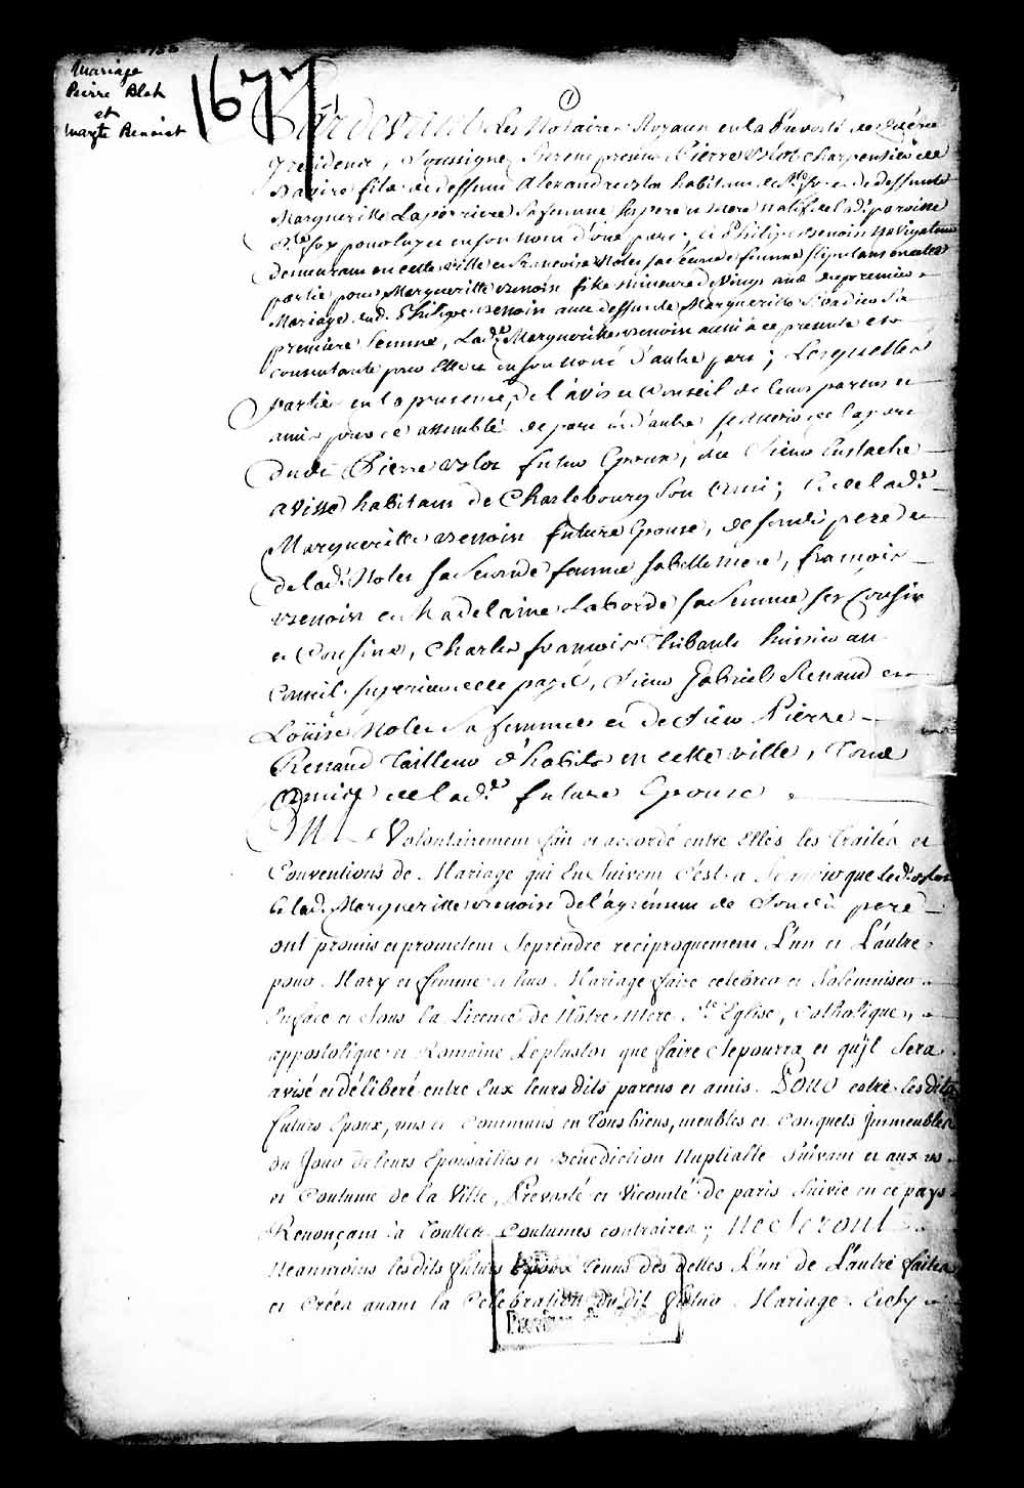 Mariage
Pierre Blot
et
Margte Benoist
1677
1
Pardevant Les Notaires Royaux en la Prevosté de
Residents, Soussignez Furent presens Pierre Blot charpentier de
Navire fils de deffunt Alexandre Blot habitant de Ste foy et de deffunte
Margueritte Laperriere Sa femme ses pere et mere natif de lad. paroisse
Ste foy pour luy et en son nom d'une part; Et Philipe Benoin Navigateur
demeurant en cette ville et francoise Nolet sa seconde femme stipulans en cette
partie pour Marguerite Benoin fille mineure de Vingt ans du premier
Mariage dud. Philipe Benoin avec deffunte Marguerite Sa
premiere femme, Lade. Marguerite Benoin aussi à ce presente et
consentante pour Elle et en son nom d'autre part; Lesquelles
Partie en la presence, de l'avis et Conseil de leurs parens et
amis pour ce assemblé de part et d'autre sçavoir de la part
dudt. Pierre Blot futur Epoux, du Sieur Eustache
habitant de Charlebourg son Ami; Et de lade.
Marguerite Benoin future Epouse, de sondt. pere et
de lad. Nolet sa seconde femme sa belle mere, francois
Benoin et Madelaine Laborde sa femme ses Cousin
et Cousine, Charles francois Thibault huissier au
Conseil superieur de ce païs, Sieur Gabriel Renaud et
Louise Nolet Sa femme et de Sieur Pierre
Renaud Tailleur d'habits en cette ville, Tous
Amis de lade. future Epouse
Volontairement fait et accordé entre Elles les Traités et
Conventions de Mariage qui En suivent C'est a Scavoir que led. Blot
et lad. Marguerite Benoin de l'agrément de Son dt. pere
ont promis et promettent Se prendre reciproquement L'un et L'autre
pour Mary et femme et leur Mariage faire celebrer et Solemniser
En face et sous la Licence de Nôtre Mere Ste. Eglise, Catholique,
appostolique et Romaine Le plustot que faire Se pourra et qu'jl Sera
avisé et délibéré entre Eux leurs dits parens et amis. Pour estre les dits
futurs Epoux, uns et Communs en Tous biens, meubles et Conquets Jmmeubles
du Jour de leurs Epousailles et Bénédiction Nuptialle Suivant et aux us
et Coutume de la Ville, Prevosté et Vicomté de paris Suivie en ce pays
Renonçant à Touttes Coutumes contraires; Ne Seront
Neanmoins les dits futurs Epoux Tenus des dettes L'un de L'autre faites
et Créés avant la Celebration du dit futur Mariage.